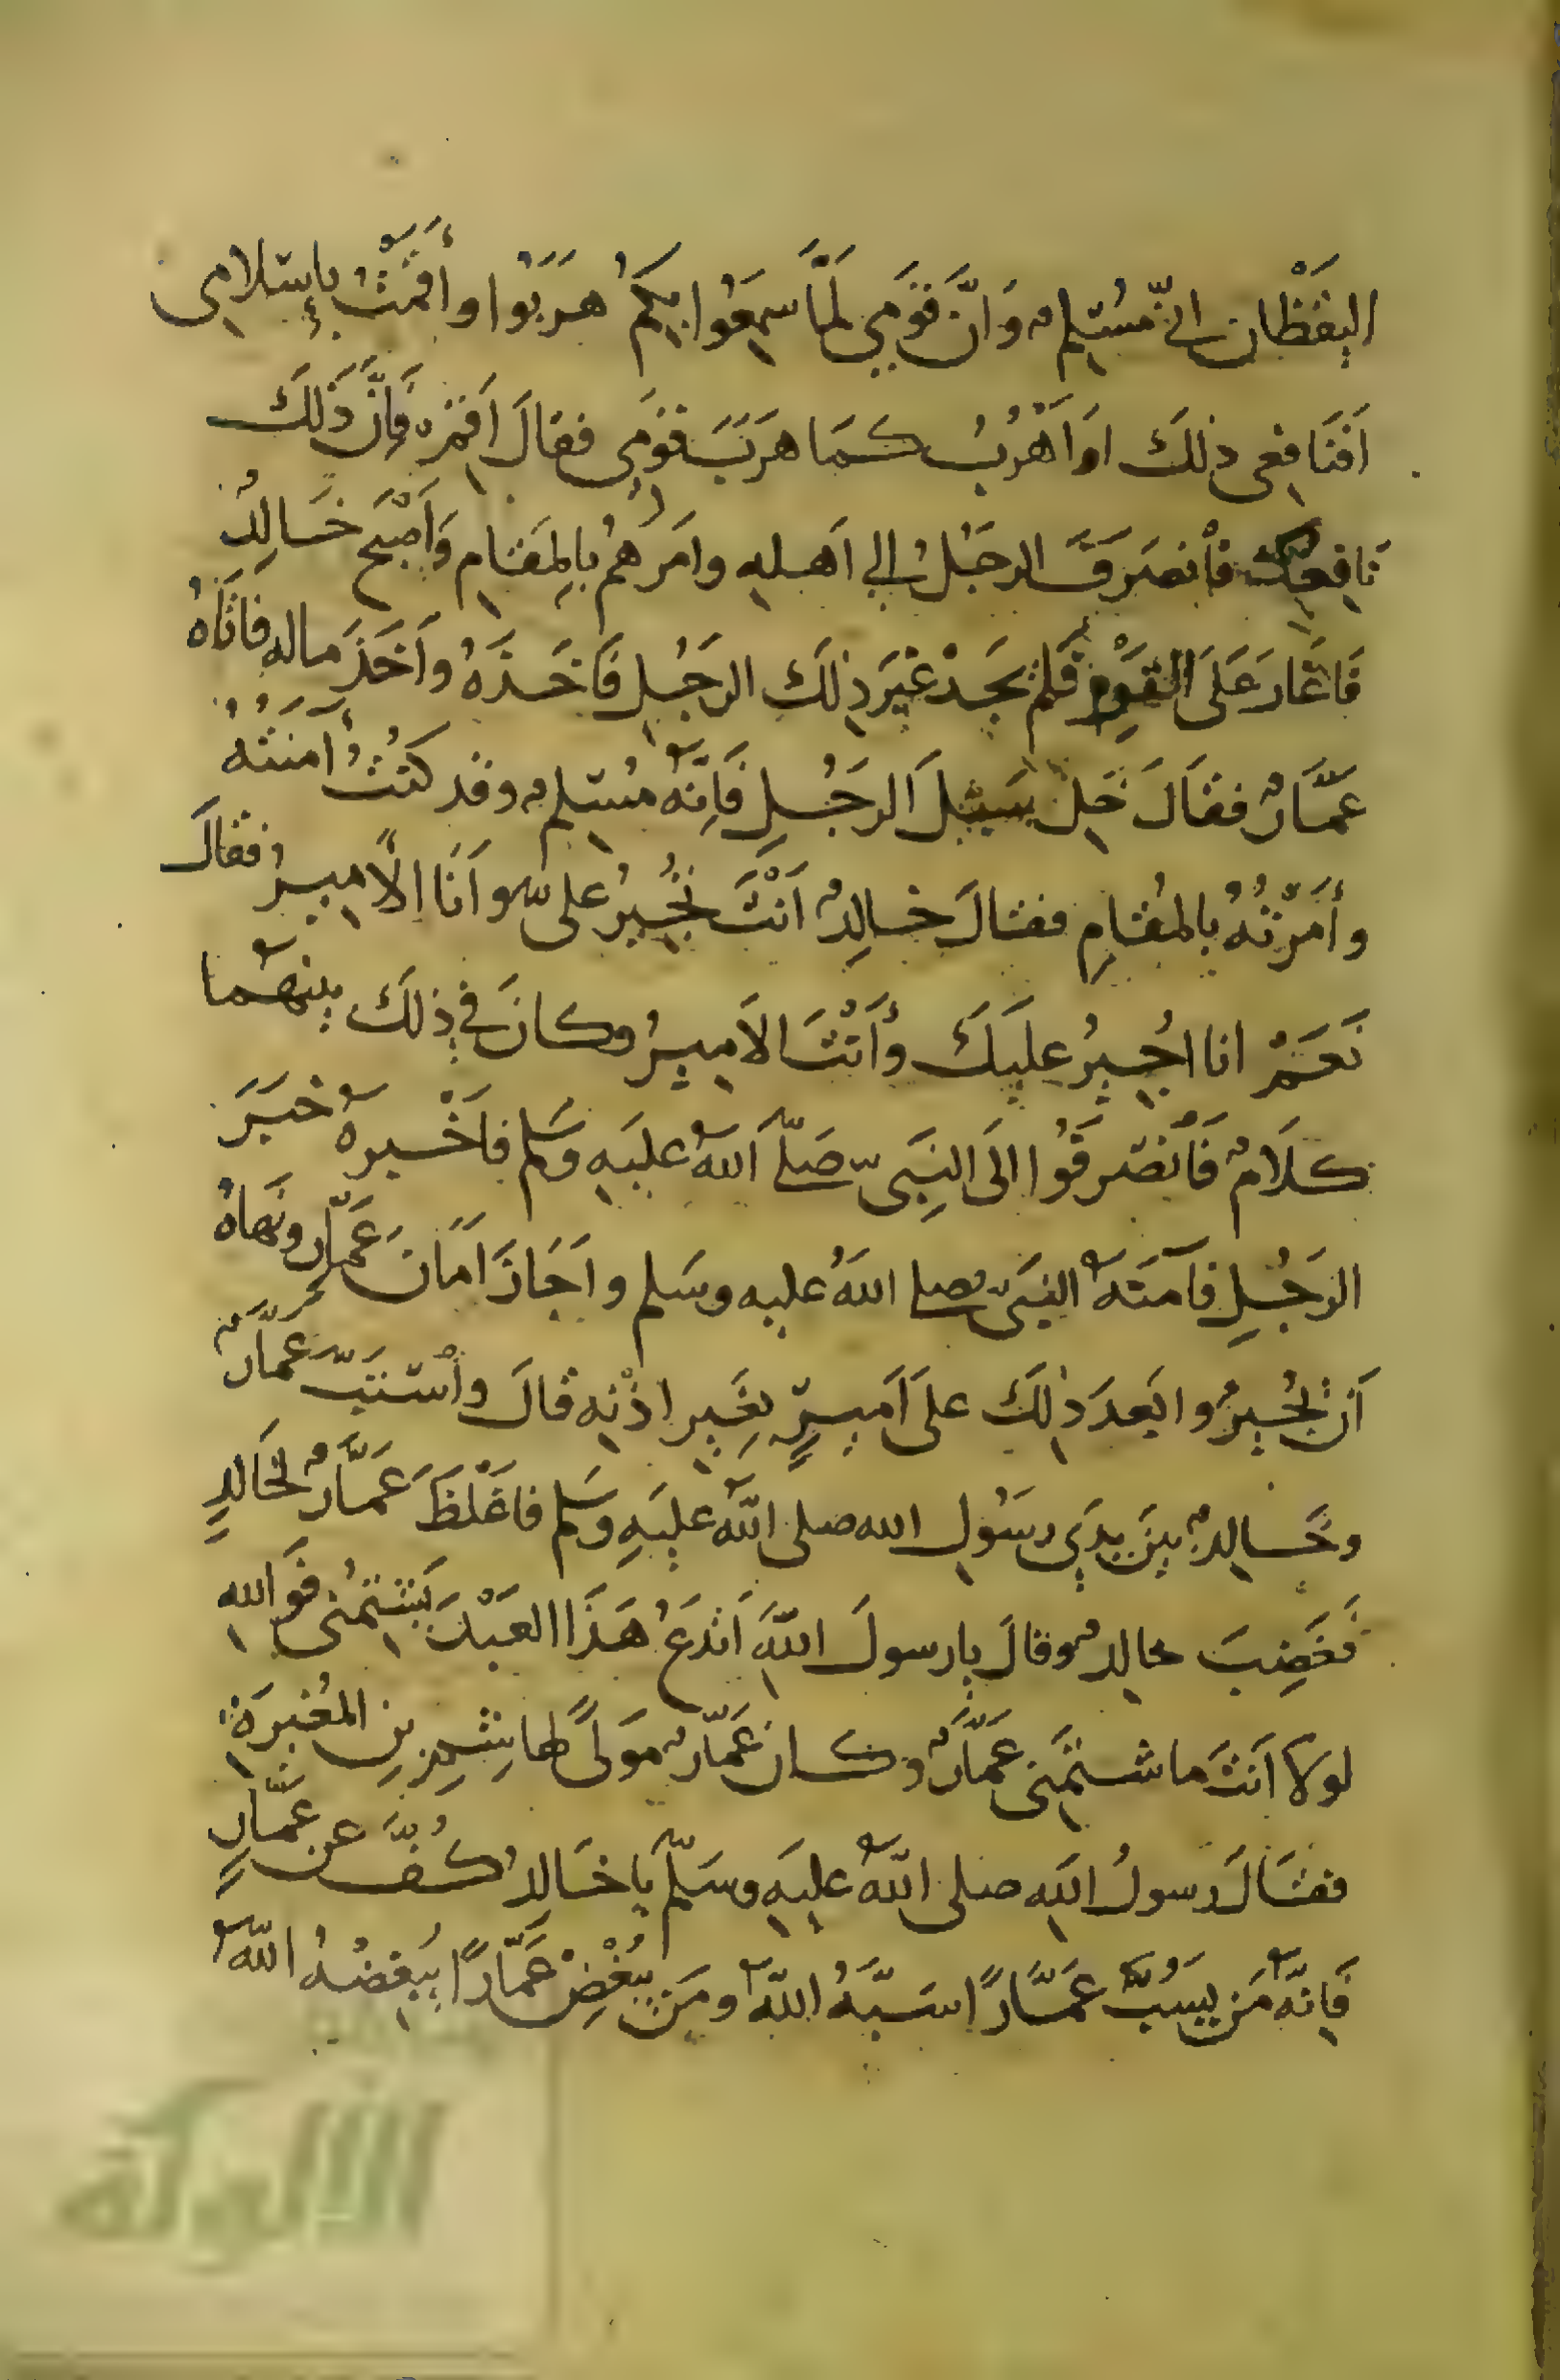 اليَقْظَانِ إنّي مُسْلِمٌ وَاَنَّ قَوْمِي لَمَّا سَمِعُوا بِكُمْ هَرَبُوا وأَقَمْتُ بِإِسْلامِي
اَفَنَافِعِي ذلِكَ اوَ اَهْرُبُ كَمَا هَرَبَ قَوْمِي فقالَ اَقِمْ فَاِنَّ ذَلِكَ
نَافِعُكَ فَانصَرَفَ الرجُلُ إلى اَهلِهِ وامَرَهُمْ بِالمَقَامِ وَاَصْبَحَ خَالِدٌ
فَاَغَارَ عَلَى القَوْمِ فَلَمْ يَجِدْ غَيْرَ ذلِكَ الرجُلِ فَاَخَذَهُ وَاَخَذَ ماله فَاَتَاهُ
عَمَّارٌ فقَالَ خَلِّ سَبِيلَ الرجُلِ فَاِنَّهُ مُسْلِمٌ وقد كُنْتُ أَمَنتُهُ
وأَمَرْتُهُ بالمُقَامِ فقالَ خالِدٌ اَنْتَ تُجِيرُ عليَّ وَاَنَا الأَمِيرُ فقالَ
نَعَمْ انا اُجِيرُ عليكَ وأَنْتَ الاَمِيرُ وكانَ في ذلكَ بينهُمَا
كلَامٌ فَانْصَرَفُوا الَى النبِيِّ صَلَّى اللهُ عليهِ وسَلم فاَخْبَروهُ خبَرَ
الرجُلِ فآمَنَهُ النبيُّ صلى اللهُ عليه وسَلم واَجَازَ اَمَانَ عَمَّارٍ ونَهاهُ
اَن يُجِيرُوا بَعدَ ذلِكَ علَى اَمِيرٍ بِغَيرِ اِذْنِهِ قالَ واُسْتَبَّ عَمَّارٌ
وخَالِدٌ بينَ يدَيْ رسُولِ الله صلى اللهُ عليهِ وسَلم فاَغْلَظَ عَمَّارٌ لِخَالِدٍ
فغَضِبَ خالِدٌ وقالَ يارسولَ اللهِ اَتَدَعُ هَذَا العَبْدَ يَشْتِمُني فَوَاللهِ
لولا اَنتَ ما شتَمَني عَمَّارٌ وكان عَمَّارٌ مَولىً لهاشِمِ بنِ المُغِيرَةِ
فقَالَ رسولُ اللهِ صلى اللهُ عليهِ وسَلّم يا خَالِدُ كُفَّ عن عَمَّارٍ
فَاِنَّهُ مَن يَسُبُّ عَمَّارًا سَبَّهُ اللهُ ومَن يُبْغِضْ عَمَّارًا يُبغِضُهُ اللهُ
الألوكة